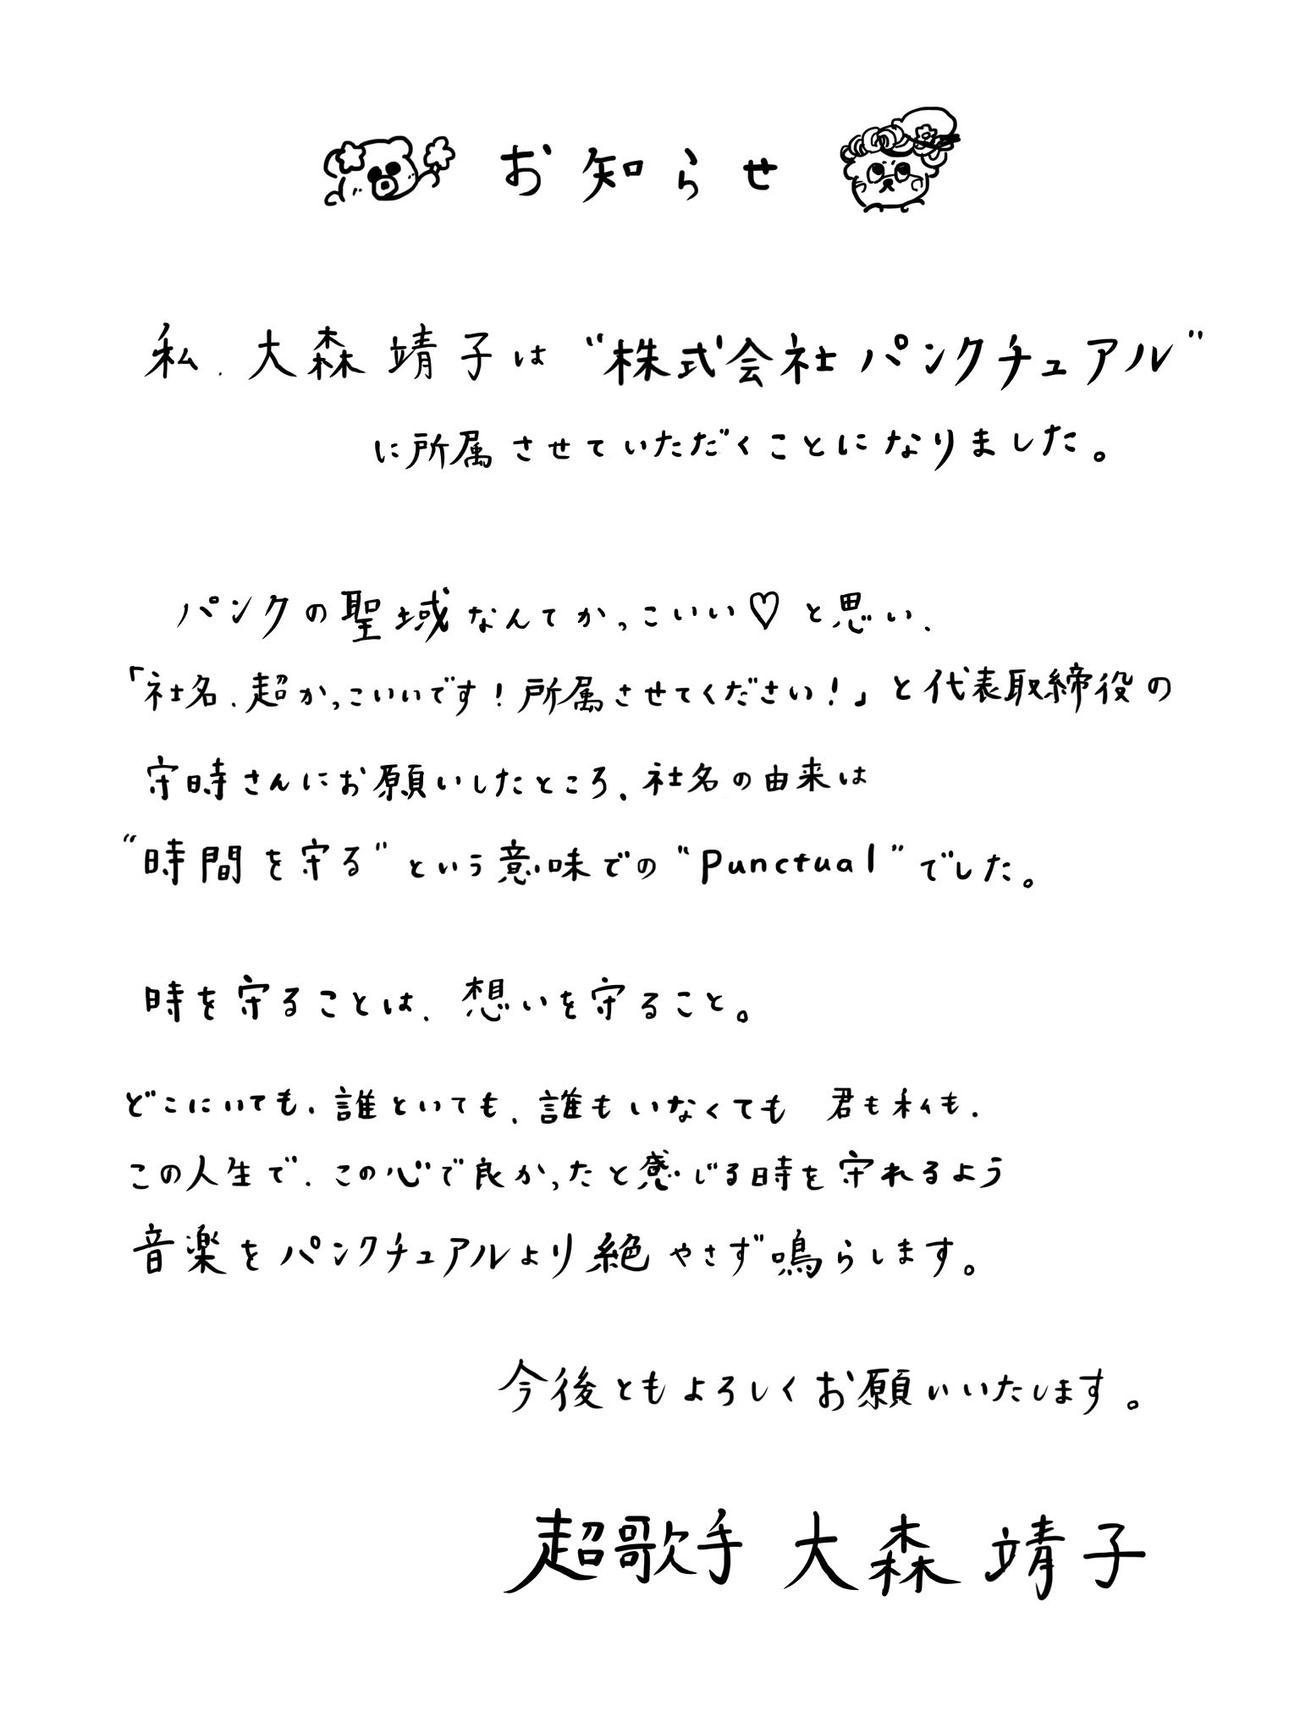 お知らせ
私、大森靖子は“株式会社パンクチュアル”
に所属させていただくことになりました。
パンクの聖域なんてかっこいい♡と思い、
「社名、超かっこいいです!所属させてください!」と代表取締役の
守時さんにお願いしたところ、社名の由来は
“時間を守る”という意味での“Punctual”でした。
時を守ることは、想いを守ること。
どこにいても、誰といても、誰もいなくても 君も私も、
この人生で、この心で良かったと感じる時を守れるよう
音楽をパンクチュアルより絶やさず鳴らします。
今後ともよろしくお願いいたします。
超歌手 大森靖子